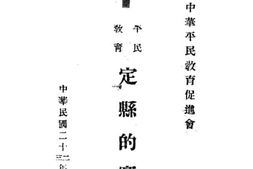 中華平民教育促進會
平民
教育
定縣的
中華民國二十